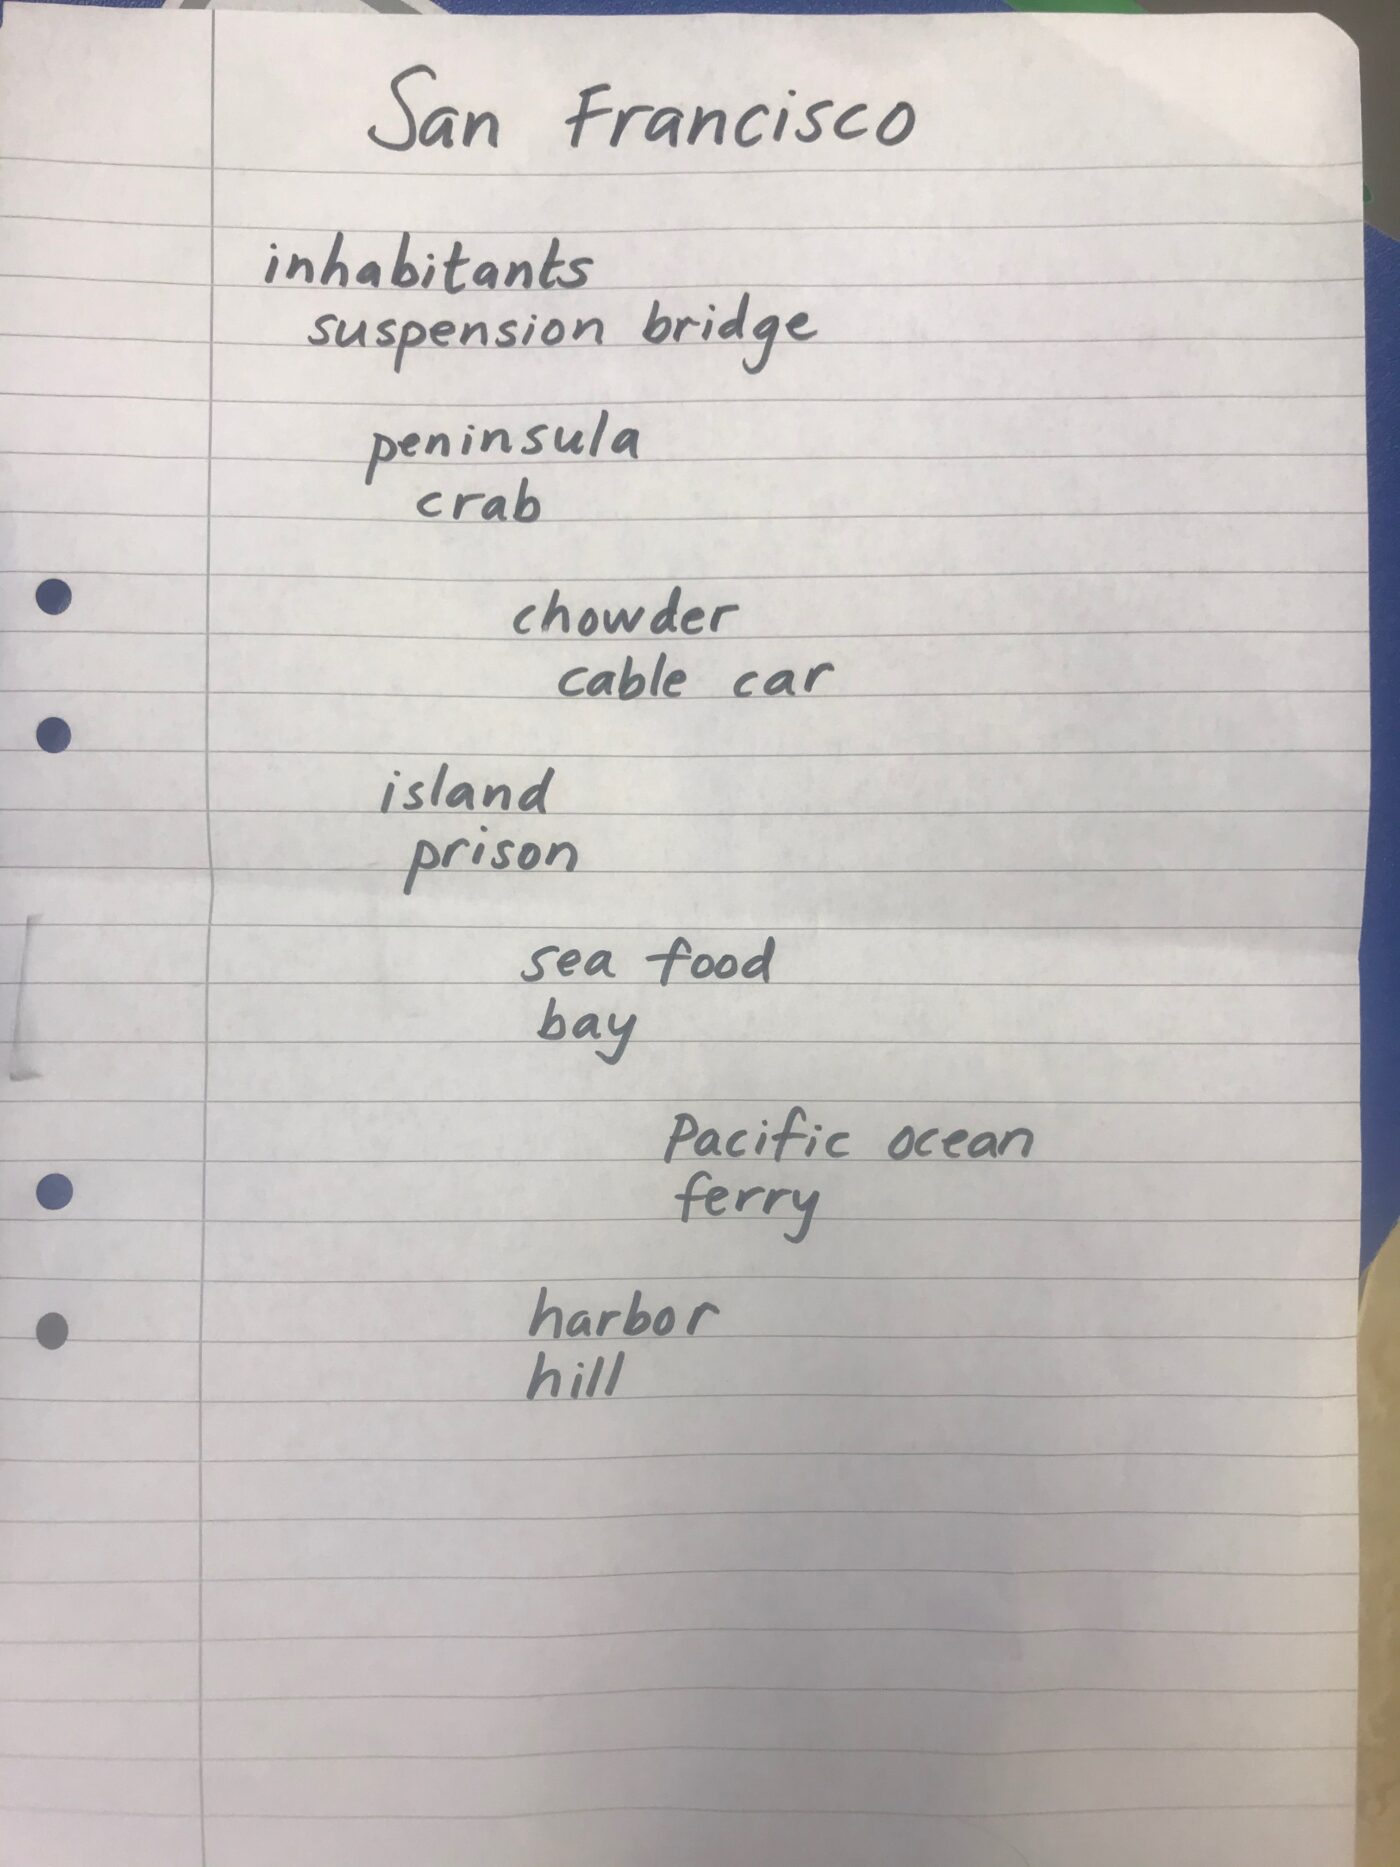 San Francisco
inhabitants
suspension bridge
peninsula
crab
chowder
cable car
island
prison
sea food
bay
Pacific ocean
ferry
harbor
hill